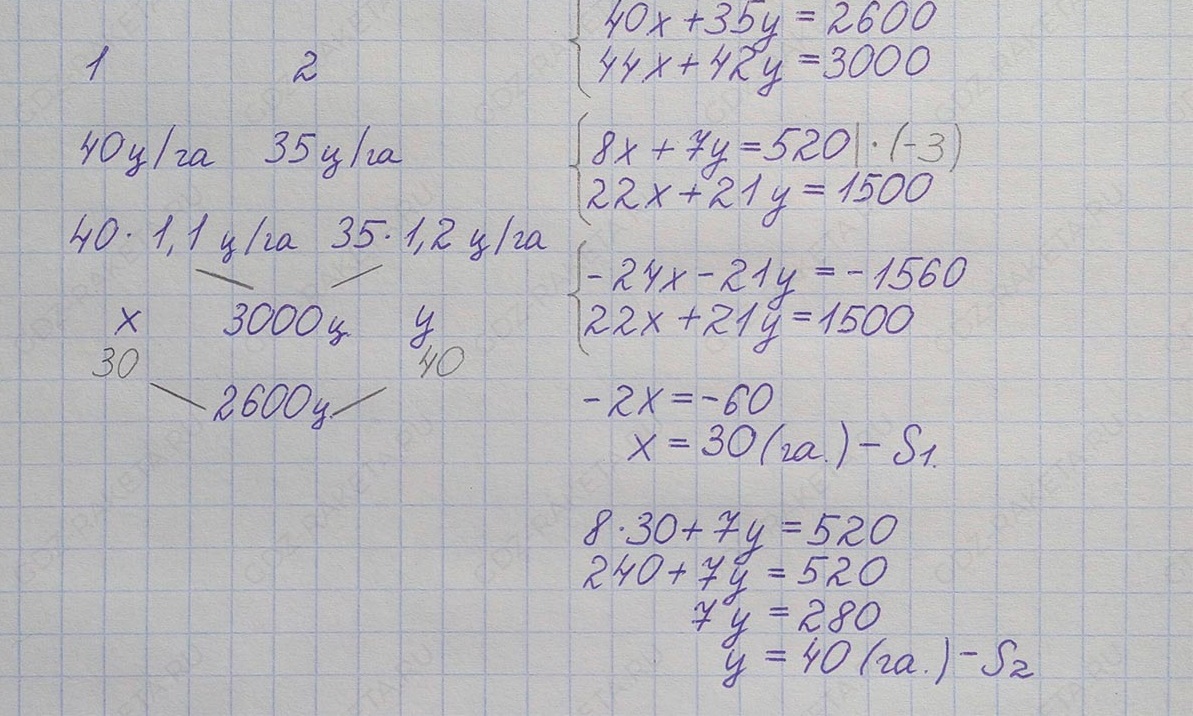 1 2
40ц/га 35ц/га
40·1,1ц/га 35·1,2ц/га
x 3000ц y
30 40
2600ц
40x+35y=2600
44x+42y=3000
8x+7y=520|·(-3)
22x+21y=1500
-24x-21y=-1560
22x+21y=1500
-2x=-60
x=30(га.)-S1.
8·30+7y=520
240+7y=520
7y=280
y=40(га.)-S2
GDZ-RAKETA.RU